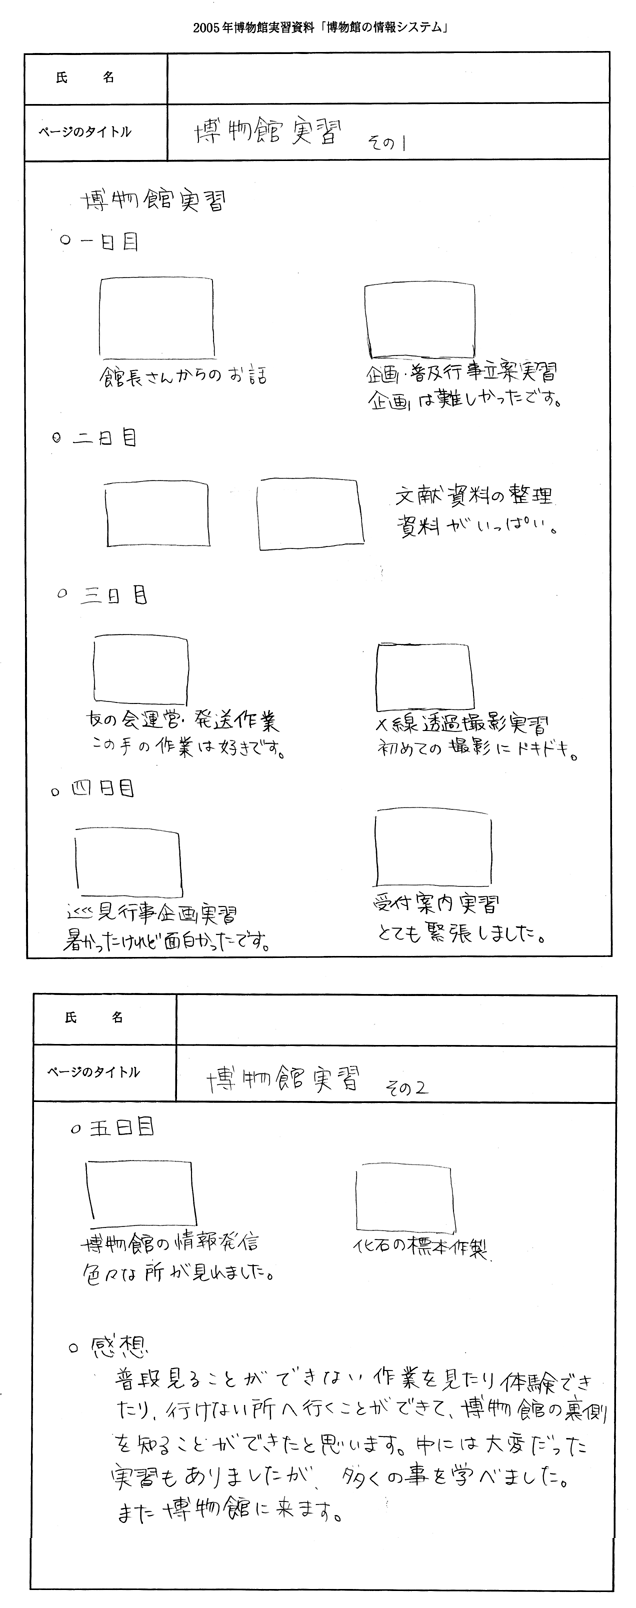 2005年博物館実習資料「博物館の情報システム」
氏　名
ページのタイトル　博物館実習　その1
博物館実習
○ 一日目
館長さんからのお話
企画・普及行事立案実習
企画は難しかったです。
○ 二日目
文献資料の整理
資料がいっぱい。
○ 三日目
友の会運営・発送作業
この手の作業は好きです。
X線透過撮影実習
初めての撮影にドキドキ。
○ 四日目
巡見行事企画実習
暑かったけれど面白かったです。
受付案内実習
とても緊張しました。
氏　名
ページのタイトル　博物館実習　その2
○ 五日目
博物館の情報発信
色々な所が見れました。
化石の標本作製
○ 感想
普段見ることができない作業を見たり体験でき
たり、行けない所へ行くことができて、博物館の裏側
を知ることができたと思います。中には大変だった
実習もありましたが、多くの事を学べました。
また博物館に来ます。